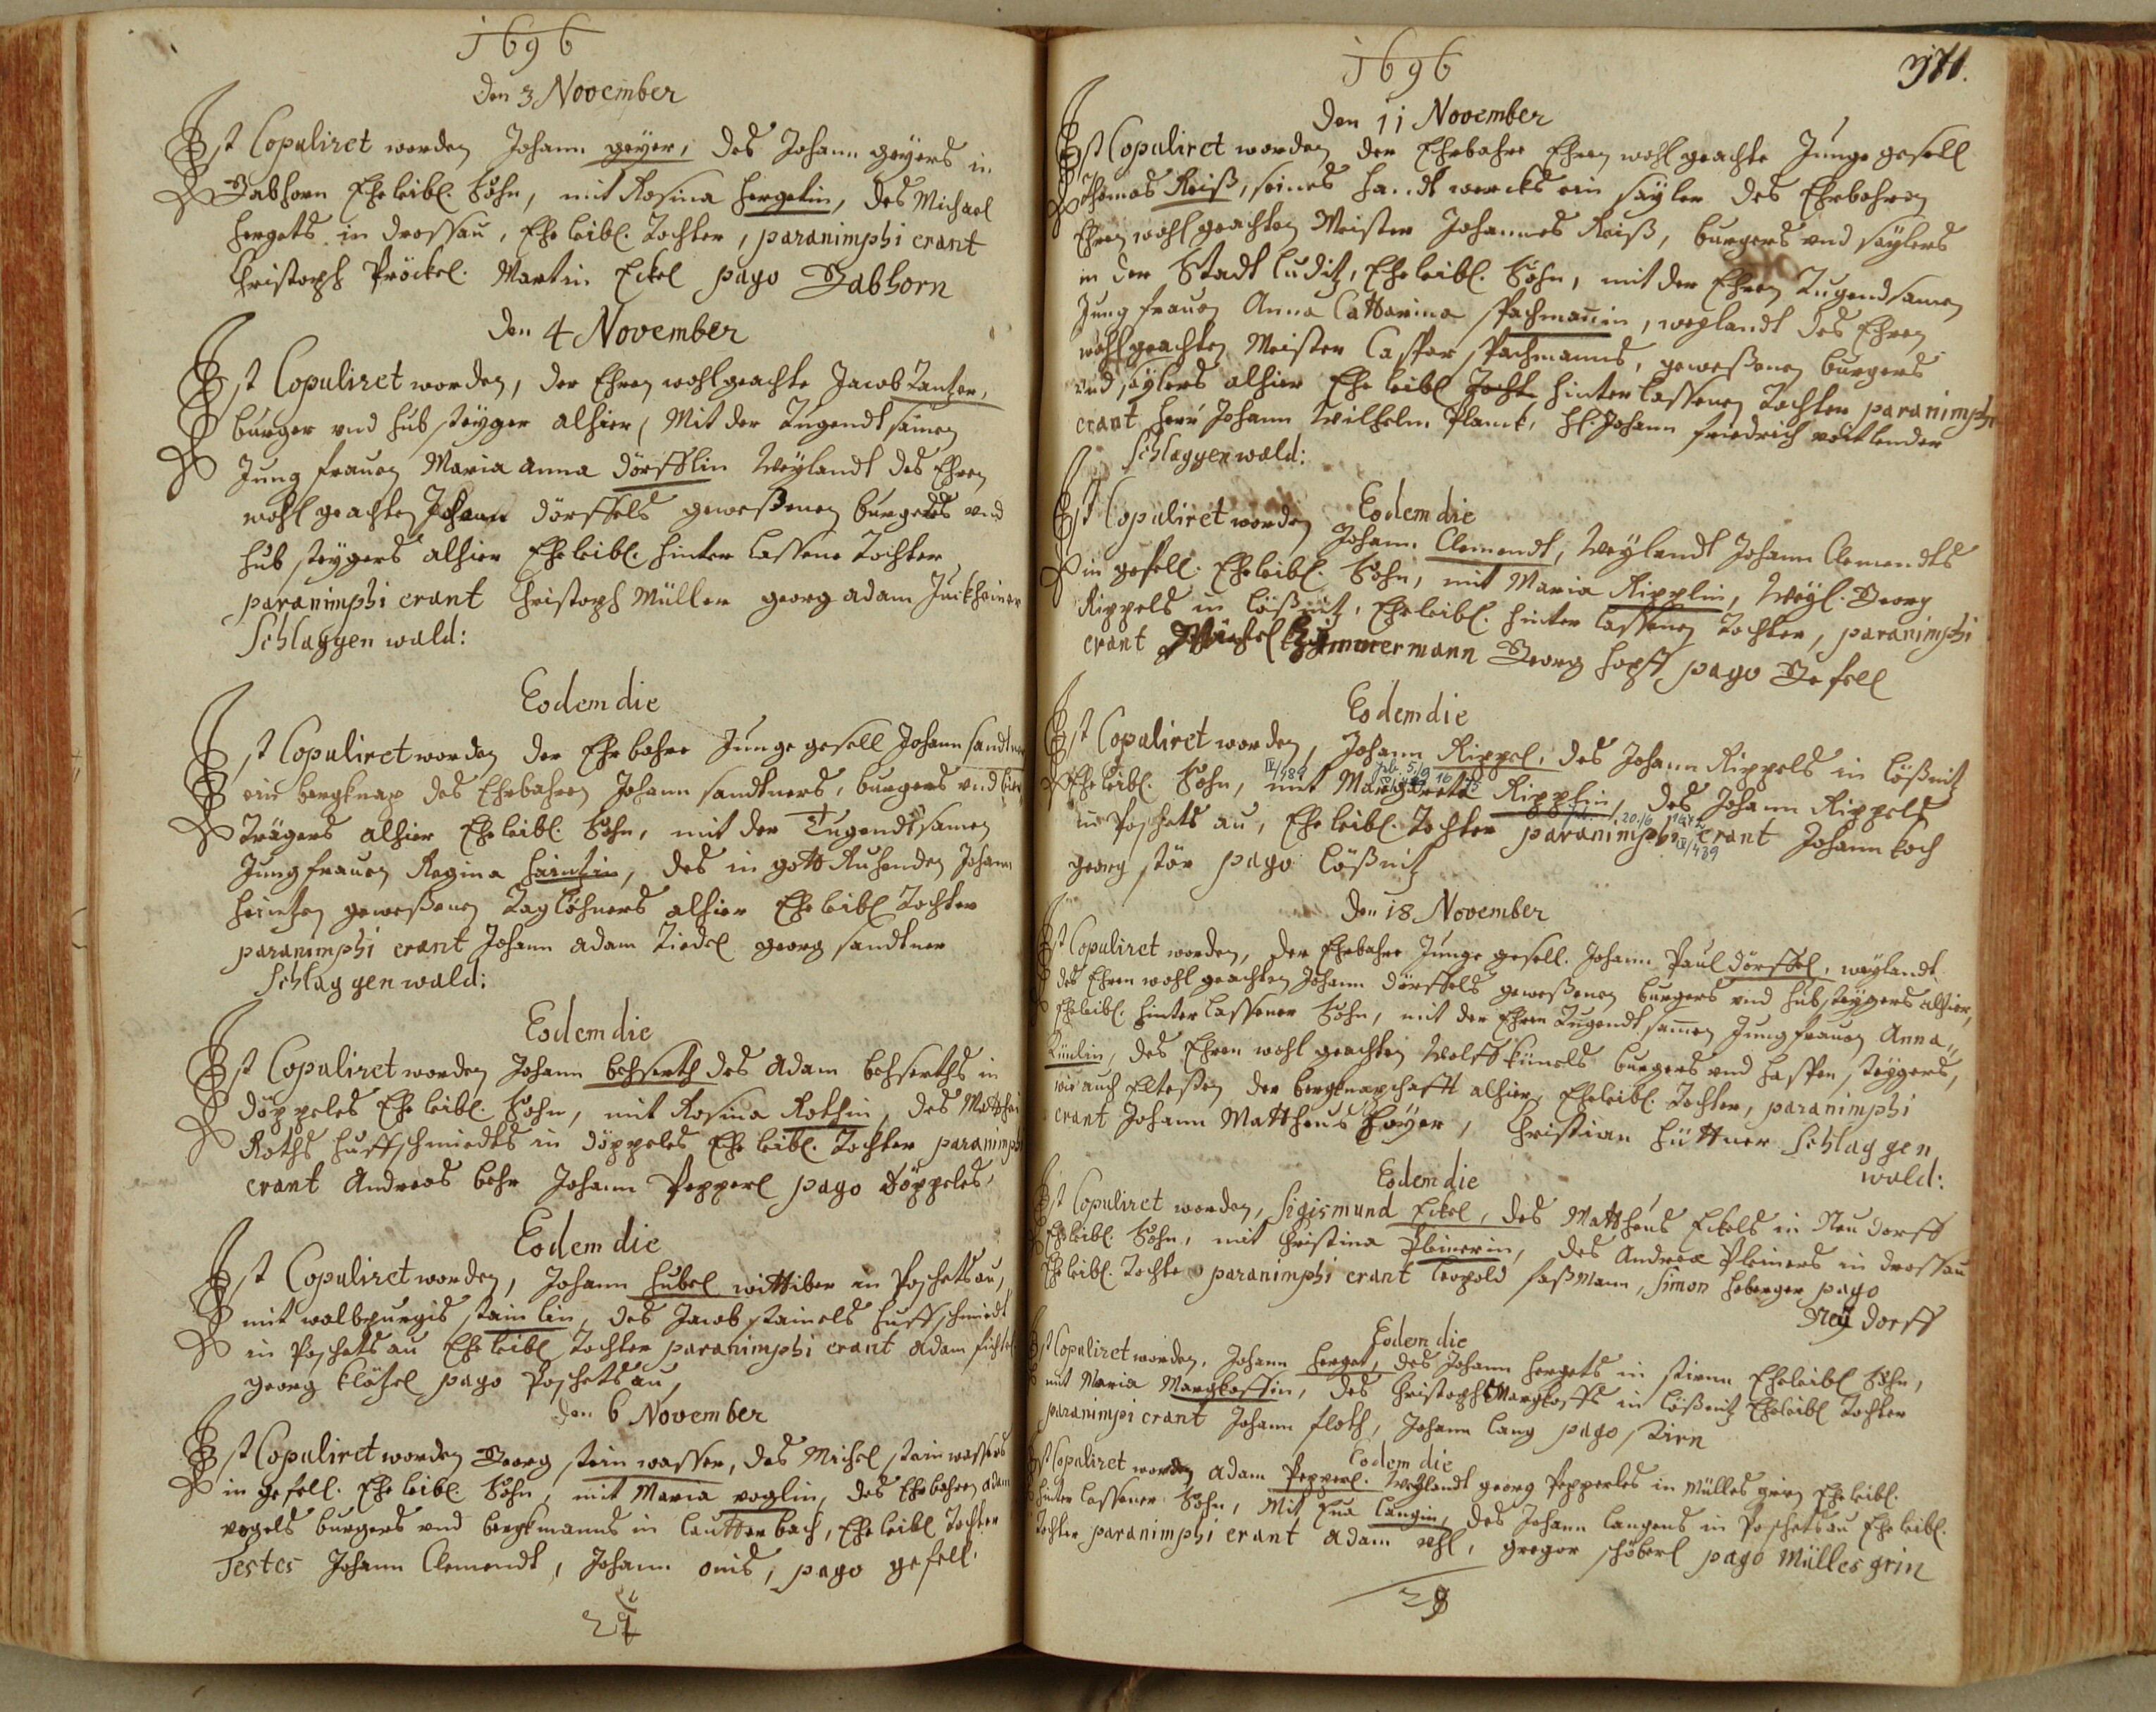 1696
den 3 November
Ist Copuliret worden Johann geÿer, des Johann geÿers in
Gabhorn Eheleibl. Sohn, mit Rosina Hergetin, des Michael
Hergets in drossau, Eheleibl. Tochter, paranimphi erant
Christoph Pröckel. Martin Eckel pago Gabhorn
den 4 November
Ist Copuliret worden, der Ehren wohlgeachte Jacob Tantzer,
burger vnd hub steÿger alhier, Mit der Tugendt samen
Jungfrauen Maria Anna dörfflin Weÿlandt des Ehren
wohl geachten Johann dörffels geweßenen burgers vnd
hub steÿgers alhier Eheleibl. hinter lassene Tochter
paranimphi erant Christoph Müller georg adam
Schlaggenwald:
Eodem die
Ist Copuliret worden der Ehrbahre Junge gesell Johann sandtner
ein bergknap des Ehrbahren Johann sandtners, burgers vnd bier
Trägers alhier Eheleibl. Sohn, mit der Tugendtsamen
Jungfrauen Regina Heintzin, des in gott Ruhenden Johann
Heintzen geweßenen Taglöhners alhier Eheleibl Tochter
paranimphi erant Johann adam Tiedel georg sandtner
Schlaggenwald:
Eodem die
Ist Copuliret worden Johann behserth des Adam behserths in
döppeles Eheleibl. Sohn, mit Rosina Rothin, des Matthei
Roths huffschmiedts in döppeles Eheleibl. Tochter paranimphi
erant Andreas behr Johann Pepperl pago döppeles,
Eodem die
Ist Copuliret worden, Johann Hubel wittiber in Poschetsau,
mit walbpurgis stainlin, des Jacob stainels huffschmiedt
in Poschetsau Eheleibl Tochter paranimphi erant Adam fichtel
georg klötzel pago Poschetsau,
den 6 November
Ist Copuliret worden Georg steinwasser, des Michel steinwassers
in gefell. Eheleibl. Sohn, mit Maria voglin, des Ehrbahren adam
vogels burgers vnd bergkmanns in lautterbach, Eheleibl Tochter
Testes Johann Clemendt, Johann onis, pago gefell.
1696
371.
den 11 November
Ist Copuliret worden der Ehrbahre Ehren wohl geachte Junge gesell
Thomas Reiß, seines handtwercks ein saÿler des Ehrbahren
Ehren wohlgeachten Meister Johannes Reiß, burgers vnd saÿlers
in der Stadt luditz, Eheleibl. Sohn, mit der Ehren Tugendsamen
Jungfrauen Anna Catharina Pachmanin, weÿlandt des Ehren
wohlgeachten Meister Caspar Pachmanns, geweßenen burgers
vnd saÿlers alhier Eheleibl hinterlassenen Tochter paranimphi
erant Herr Johann Wilhelm Planck, H. Johann friedrich voitlender
Schlaggenwald:
Eodem die
Ist Copuliret worden Johann Clemendt, Weÿlandt Johann Clemendts
in gefell. Eheleibl. Sohn, mit Maria Ripplin, Weÿl. Georg
Rippels in lößnitz, Eheleibl. hinter lassenen Tochter, paranimphi
erant Zimmermann Georg Hopff pago Gefell
Eodem die
Ist Copuliret worden, Johann Rippel, des Johann Rippels in lößnitz
Eheleibl. Sohn, mit Margareta Ripplin, des Johann Rippels
in Poschetsau, Eheleibl. Tochter paranimphi erant Johann koch
georg stör pago lößnitz
den 18 November
Ist Copuliret worden, der Ehrbahre Junge gesell. Johann Paul dörffel, weÿlandt
des Ehren wohl geachten Johann dörffels geweßenen burgers vnd hubsteÿgers alhier,
Eheleibl. hinter lassener Sohn, mit der Ehren Tugendtsamen Jungfrauen Anna
Künlin, des Ehren wohl geachten Wolff künels burgers vnd Haspensteÿgers,
wie auch Elteßen der bergknapschafft alhier, Eheleibl. Tochter, paranimphi
erant Johann Mattheus Hoÿer, Christian Hüttner Schlaggen
wald:
Eodem die
Ist Copuliret worden, Sigismund Eckel, des Mattheus Eckels in Neudorff
Eheleibl. Sohn, mit Christina Pleinerin, des Andrea Pleiners in drossau
Eheleibl. Tochter paranimphi erant leopold faßmann, Simon Heberger pago
Neÿdorff
Eodem die
Ist Copuliret worden, Johann Herget, des Johann Hergets in stirn Eheleibl Sohn,
mit Maria Margkoffin, des Christoph Margkoffs in lößnitz Eheleibl Tochter
paranimpi erant Johann floth, Johann lang pago stirn
Eodem die
Ist Copuliret worden Adam Pepperl. Weÿlandt georg Pepperles in Müllesgrin Eheleibl.
hinter lassener Sohn, Mit Eua langin, des Johann langens in Poschetsau Eheleibl.
Tochter paranimphi erant Adam gregor schöberl pago Müllesgrin